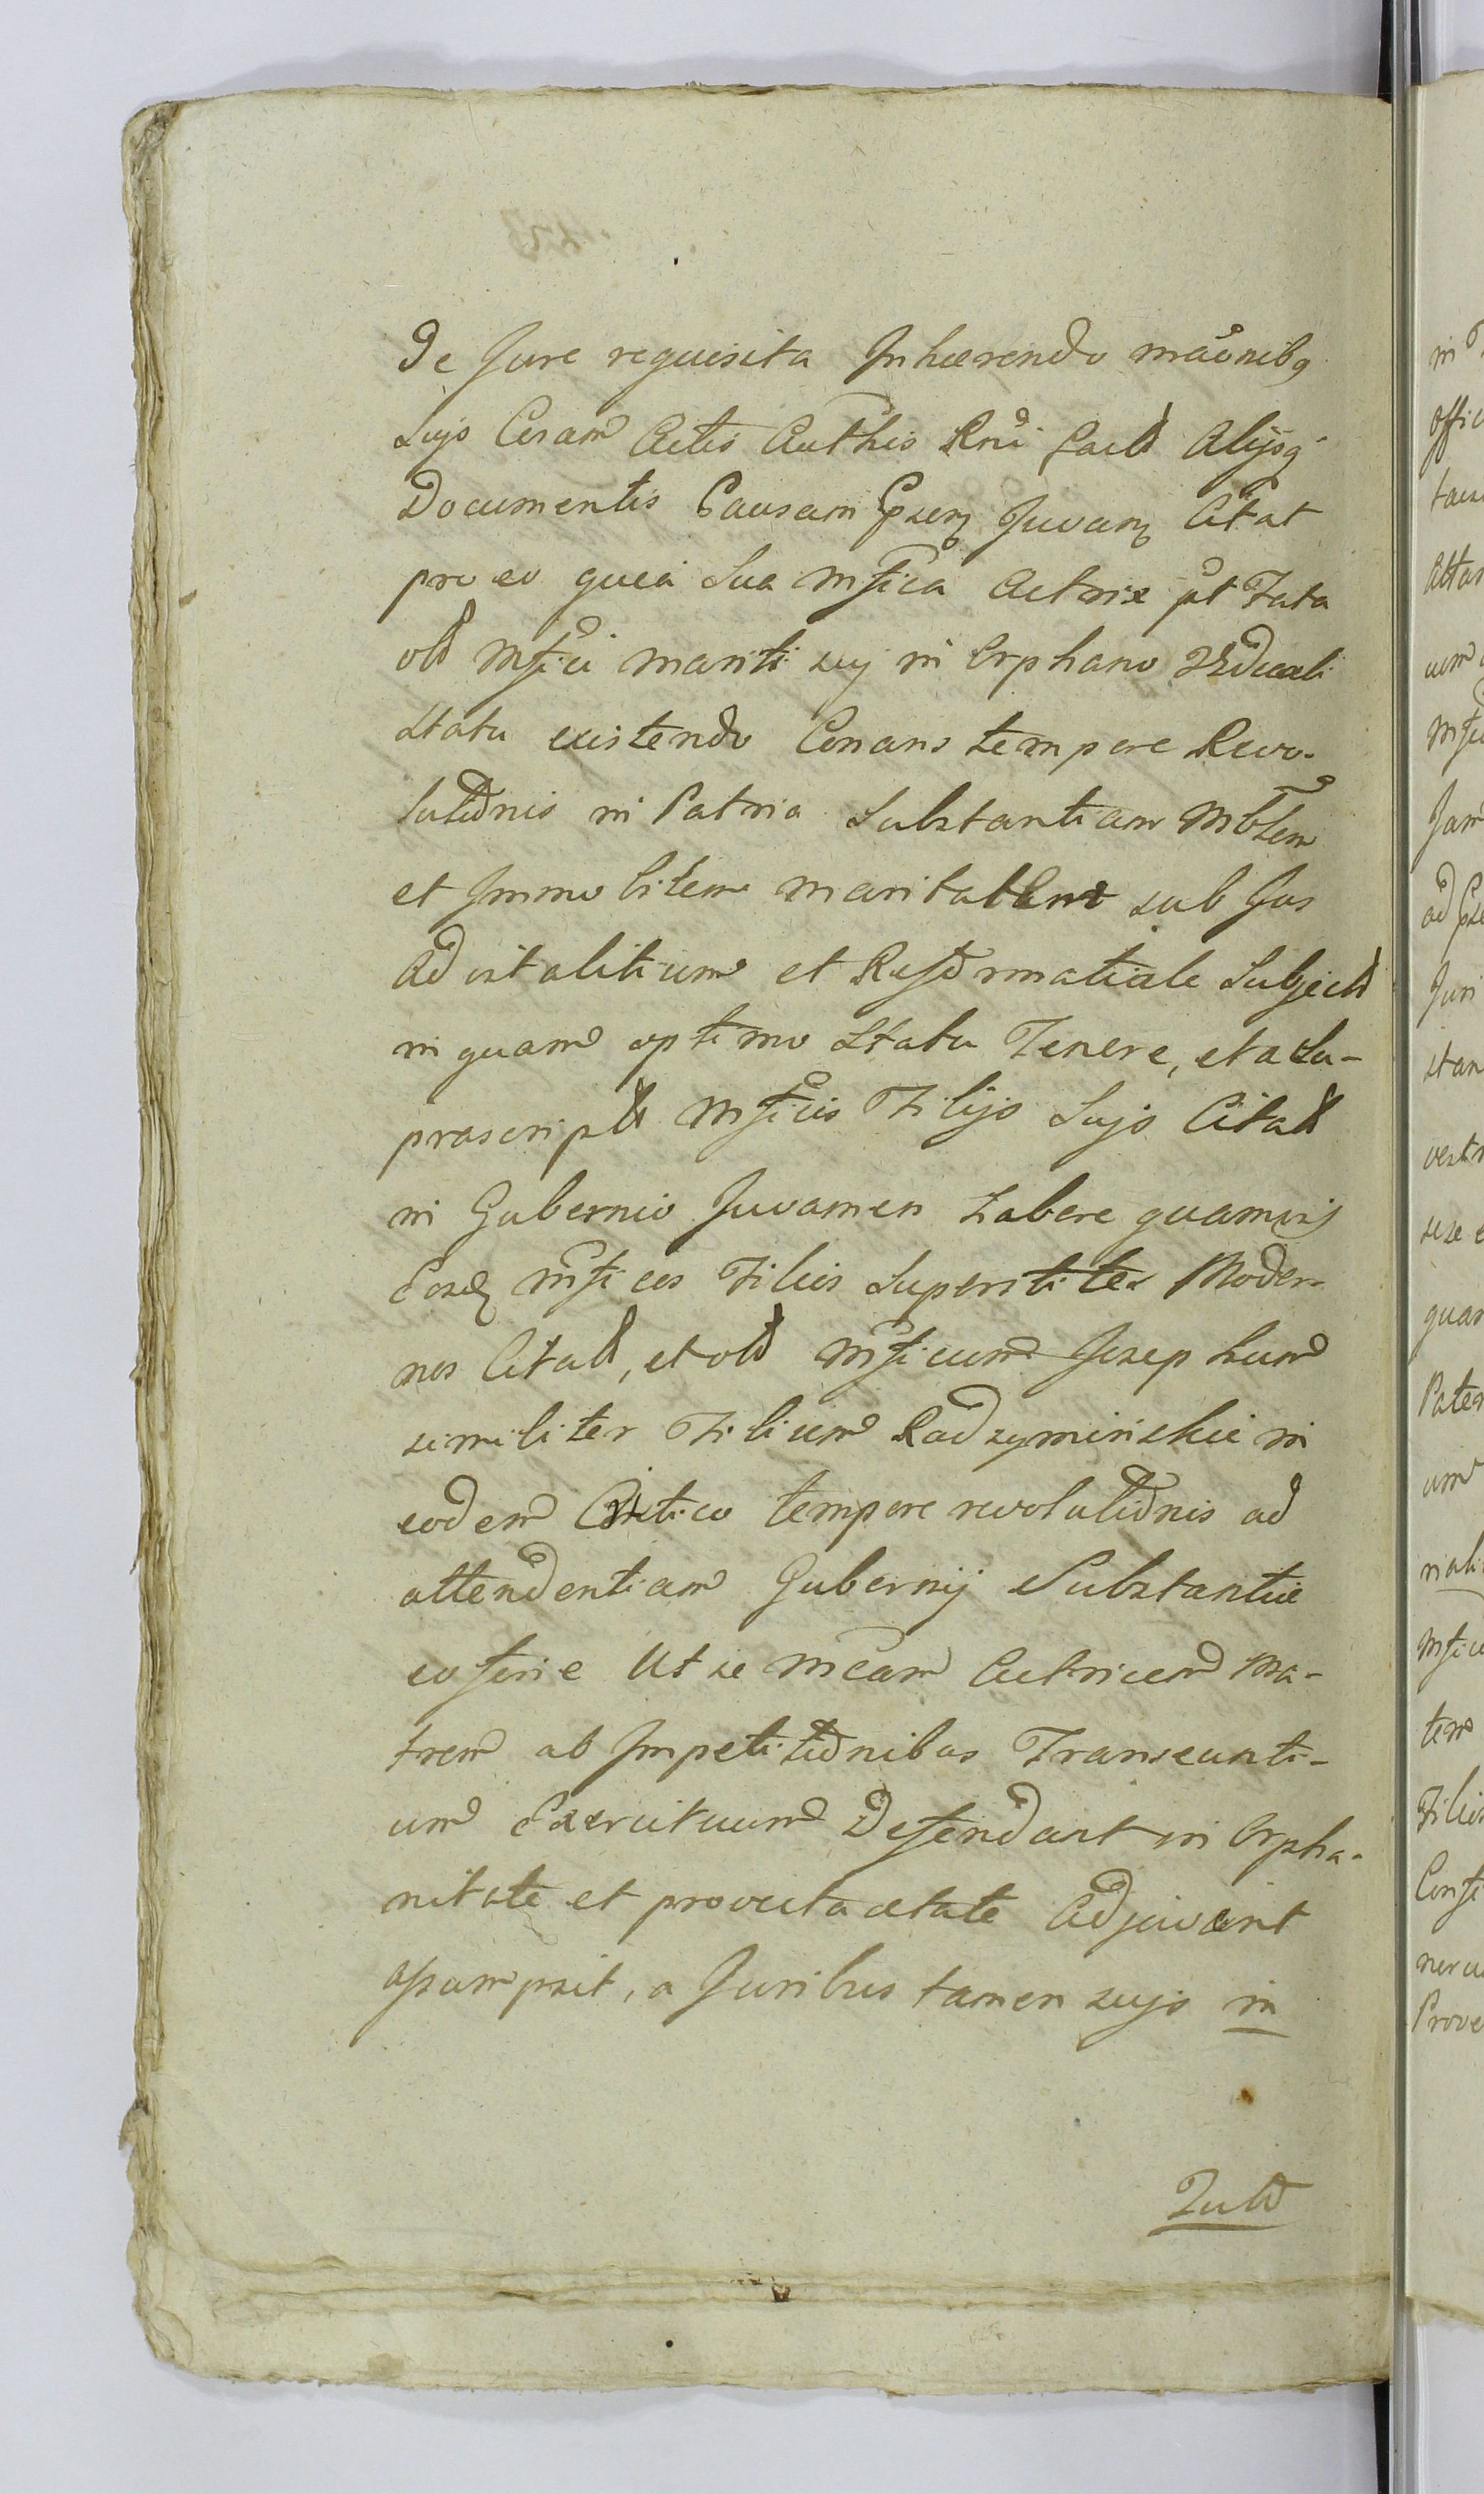 de Jure requisita Inhærendo mãonibq
Sujs Coram Actis Authis Rni factt Alijsq
Documentis Causam Pzen Juvan Citat
pro eo quia Sua Mfica Actrix pt Fata
ott Mfici mariti suj in Orphano Viduali
statu existendo Conans tempore Revo-
lutionis in Patria Substantiam Mblem
et Immobilem maritalem sub Jus
Advitalitium et Reformatiale Subjectt
in quam optimo Statu Tenere, et a Su-
prascriptt Mficis Filijs Sujs Citatt
in Gubernio Juvamen habere quamvis
Eosd Mficos Filios Superstites Moder-
nos Citatt, et ott Mficum Josephum
similiter Filium Radzyminskie in
eodem Critico tempore revolutionis ad
attendentiam Gubernij Substantiæ
eo fine Ut se Mcam Actricem Ma-
trem ab Impetitionibus Transeunti-
um Exercituum Defendant in Orpha-
nitate et provecta ætate Adjuvent
assumpsit, a Juribus tamen sujs in